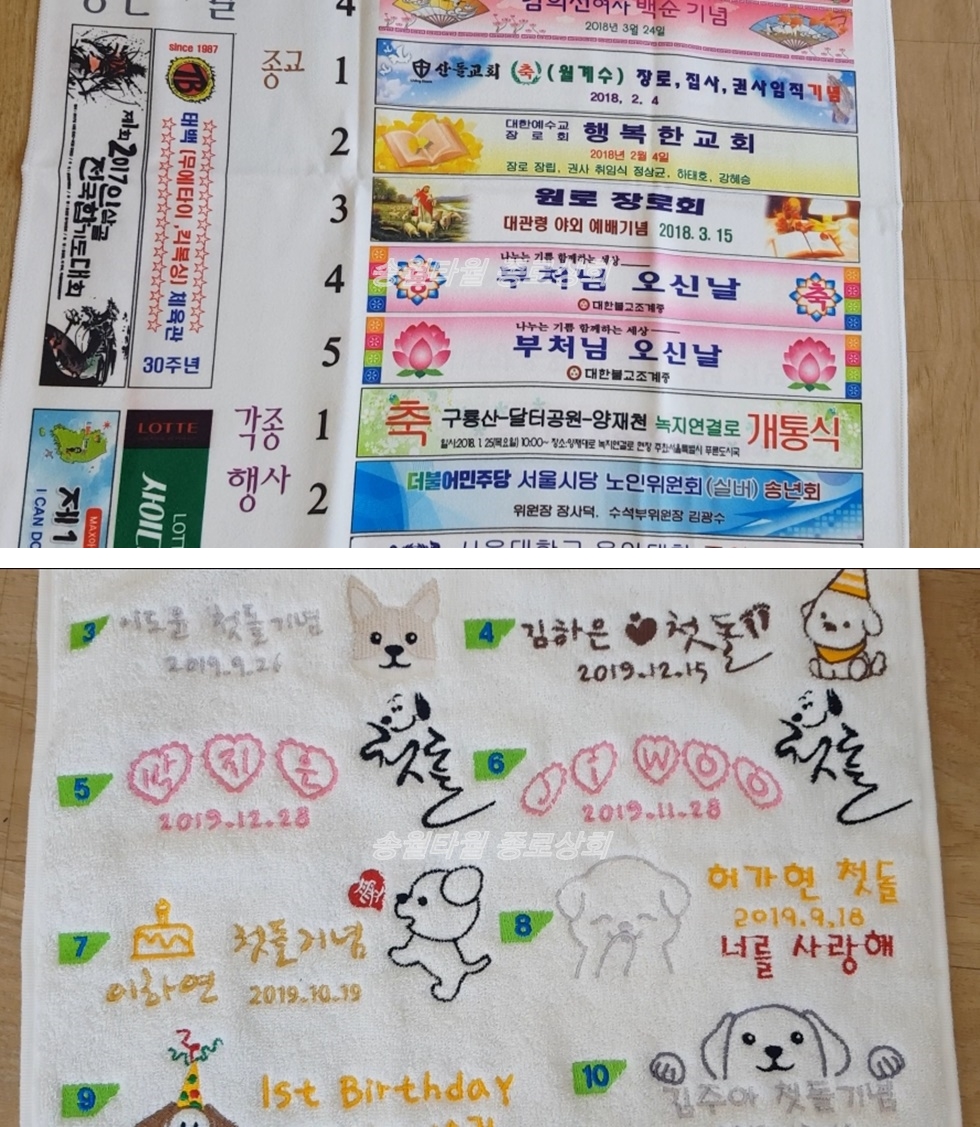 4
백순 기념
2018년 3월 24일
종교
1
산돌교회 축 (월계수) 장로,집사,권사임직기념
2018. 2. 4
2
대한예수교
장로회
행복한교회
2018년 2월 4일
장로 장립, 권사 취임식 정상균, 하태호, 강혜승
3
원로 장로회
대관령 야외 예배기념 2018. 3. 15
4
나누는 기쁨 함께하는 세상
부처님 오신날
축
대한불교조계종
5
나누는 기쁨 함께하는 세상
부처님 오신날
대한불교조계종
각종
행사
1
축 구룡산-달터공원-양재천 녹지연결로 개통식
2
더불어민주당 서울시당 노인위원회(실버) 송년회
위원장 장사덕. 수석부위원장 김광수
since 1987
TB
태백 (무에타이,킥복싱) 체육관
30주년
제1회 2017인삼골
전국합기도대회
LOTTE
제1
I CAN DO
송월타월 종로상회
3
이도윤 첫돌기념
2019.9.26
4
김하은 첫돌
2019.12.15
5
박지은
2019.12.28
첫돌
6
JiWOO
2019.11.28
첫돌
송월타월 종로상회
7
첫돌기념
이하연 2019.10.19
8
허가현 첫돌
2019.9.18
너를 사랑해
9
1st Birthday
10
김주아 첫돌기념